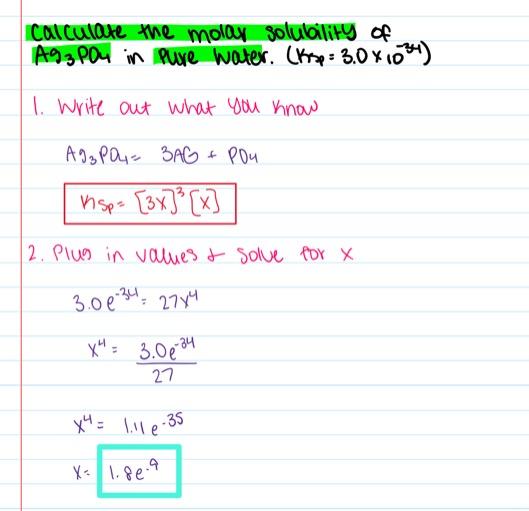 Calculate the molar solubility of
Ag3PO4 in Pure Water. (Ksp = 3.0 x 10^-34)
1. Write out what you know
Ag3PO4 = 3AG + PO4
Ksp = [3x]^3 [x]
2. Plug in values & solve for x
3.0e^-34 = 27x^4
x^4 = 3.0e^-34
27
x^4 = 1.11e^-35
x = 1.8e^-9